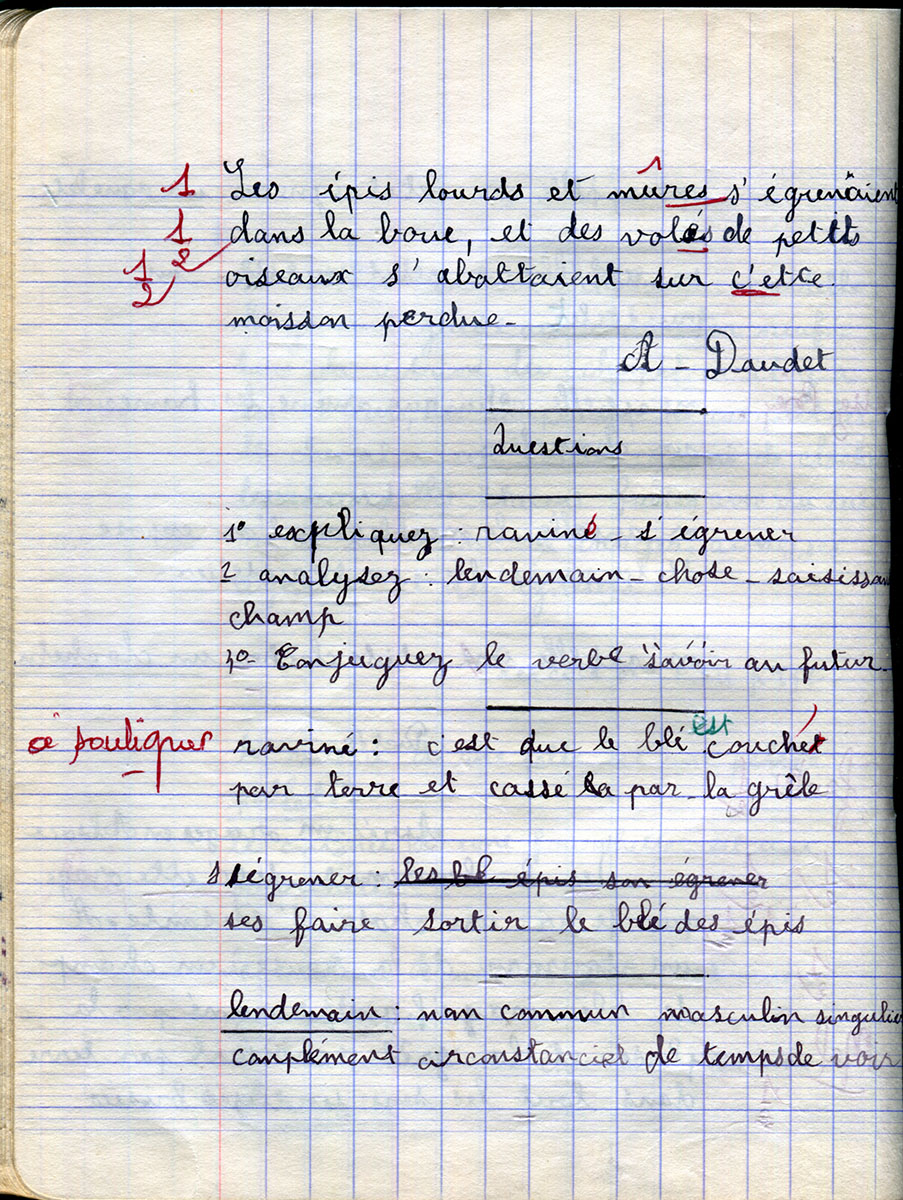 1 Les épis lourds et mûres s'égrenaient
1/2 dans la boue, et des volés de petits
1/2 oiseaux s'abattaient sur c'ette
moisson perdue.
A - Daudet
Questions
1° expliquez : raviné - s'égrener
2 analysez : lendemain - chose - saisissan
champ
3°- Conjuguez le verbe savoir au futur.
à souligner raviné : c'est que le blé est couché
par terre et cassé par la grêle
s'égrener : les blé épis son égrener
ses faire sortir le blé des épis
lendemain : nom commun masculin singulier
complément circonstanciel de temps de voir